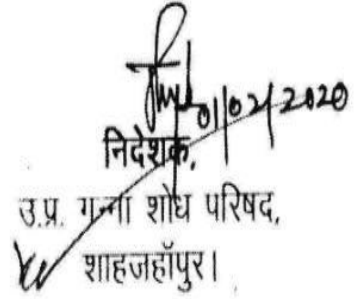 01/02/2020
निदेशक,
उ.प्र. गन्ना शोध परिषद,
शाहजहाँपुर।